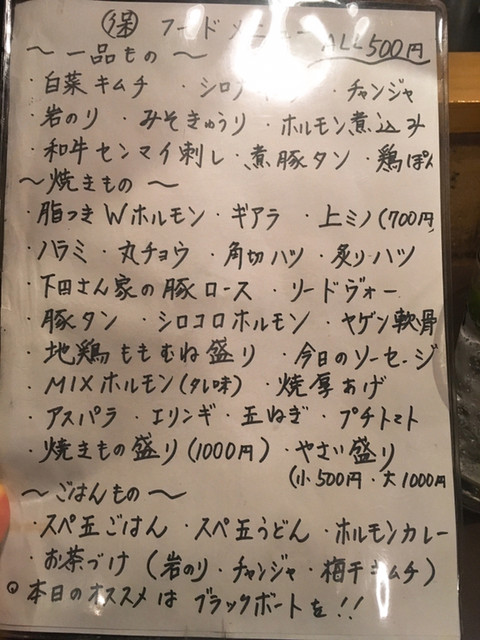 ㊝ フードメニュー ALL 500円
〜 一品もの 〜
・白菜キムチ ・シロ ・チャンジャ
・岩のり ・みそきゅうり ・ホルモン煮込み
・和牛センマイ刺し ・煮豚タン ・鶏ぽん
〜焼きもの 〜
・脂つきWホルモン ・ギアラ ・上ミノ(700円
・ハラミ ・丸チョウ ・角切ハツ ・炙りハツ
・下田さん家の豚ロース ・リードヴォー
・豚タン ・シロコロホルモン ・ヤゲン軟骨
・地鶏ももむね盛り ・今日のソーセージ
・MIXホルモン(タレ味) ・焼厚あげ
・アスパラ ・エリンギ ・玉ねぎ ・プチトマト
・焼きもの盛り(1000円) ・やさい盛り
(小500円・大1000円
〜ごはんもの 〜
・スペ玉ごはん ・スペ玉うどん ・ホルモンカレー
・お茶づけ (岩のり・チャンジャ・梅干キムチ)
本日のオススメは ブラックボートを!!